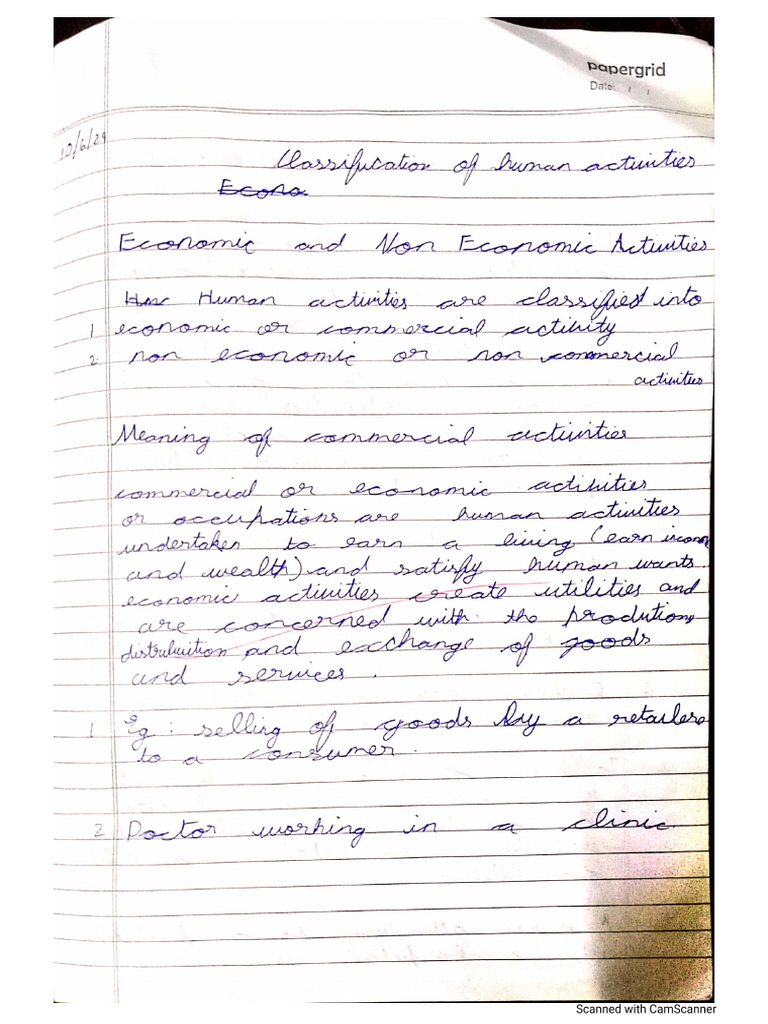 papergrid
Date: / /
10/6/24
Classification of human activities
Econo.
Economic and Non Economic Activities
Human activities are classified into
1 economic or commercial activity
2. non economic or non commercial
activities
Meaning of commercial activities
commercial or economic activities
or occupations are human activities
undertaken to earn a living (earn income
and wealth) and satisfy human wants.
economic activities create utilities and
are concerned with the prodution,
distribuition and exchange of goods
and services.
1 Eg: selling of goods by a retailere
to a consumer.
2 Doctor working in a clinic.
Scanned with CamScanner